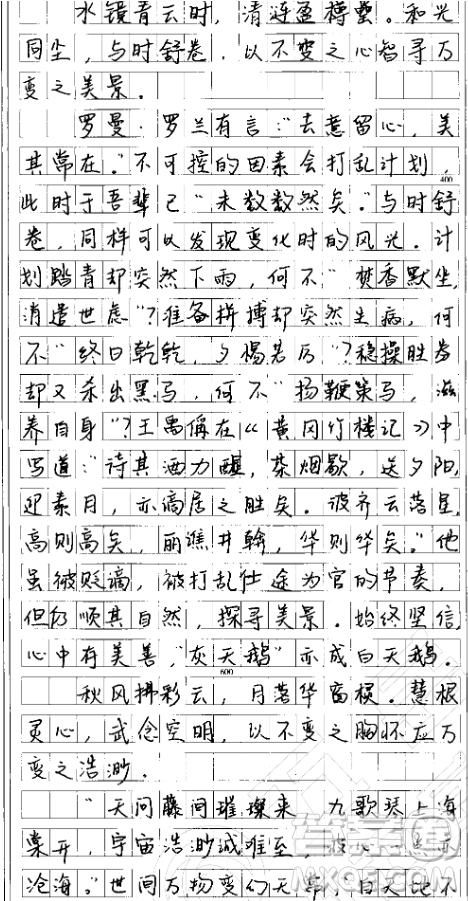 水镜看云时，清涟盈樽罍。和光
同尘，与时舒卷，以不变之心智寻万
变之美景。
罗曼·罗兰有言："去意留心，美
其常在。"不可控的因素会打乱计划，
400
此时于吾辈已"未数数然矣。"与时舒
卷，同样可以发现变化时的风光。计
划踏青却突然下雨，何不"焚香默坐，
消遣世虑"？准备拼搏却突然生病，何
不"终日乾乾，夕惕若厉"？稳操胜券
却又杀出黑马，何不"扬鞭策马，滋
养自身"？王禹偁在《黄冈竹楼记》中
写道："待其酒力醒，茶烟歇，送夕阳，
迎素月，亦谪居之胜矣。彼齐云落星，
高则高矣，丽谯井幹，华则华矣。"他
虽被贬谪，被打乱仕途为官的节奏，
但仍顺其自然，探寻美景。始终坚信
心中有美善，"灰天鹅"亦成白天鹅。
600
秋风拂彩云，月落华窗横。慧根
灵心，武念空明，以不变之胸怀应万
变之浩渺。
"天问藤间璀璨来，九歌琴上海
棠开，宇宙浩渺诚难至，彼心一点
沧海。"世间万物变幻无常，自天地不